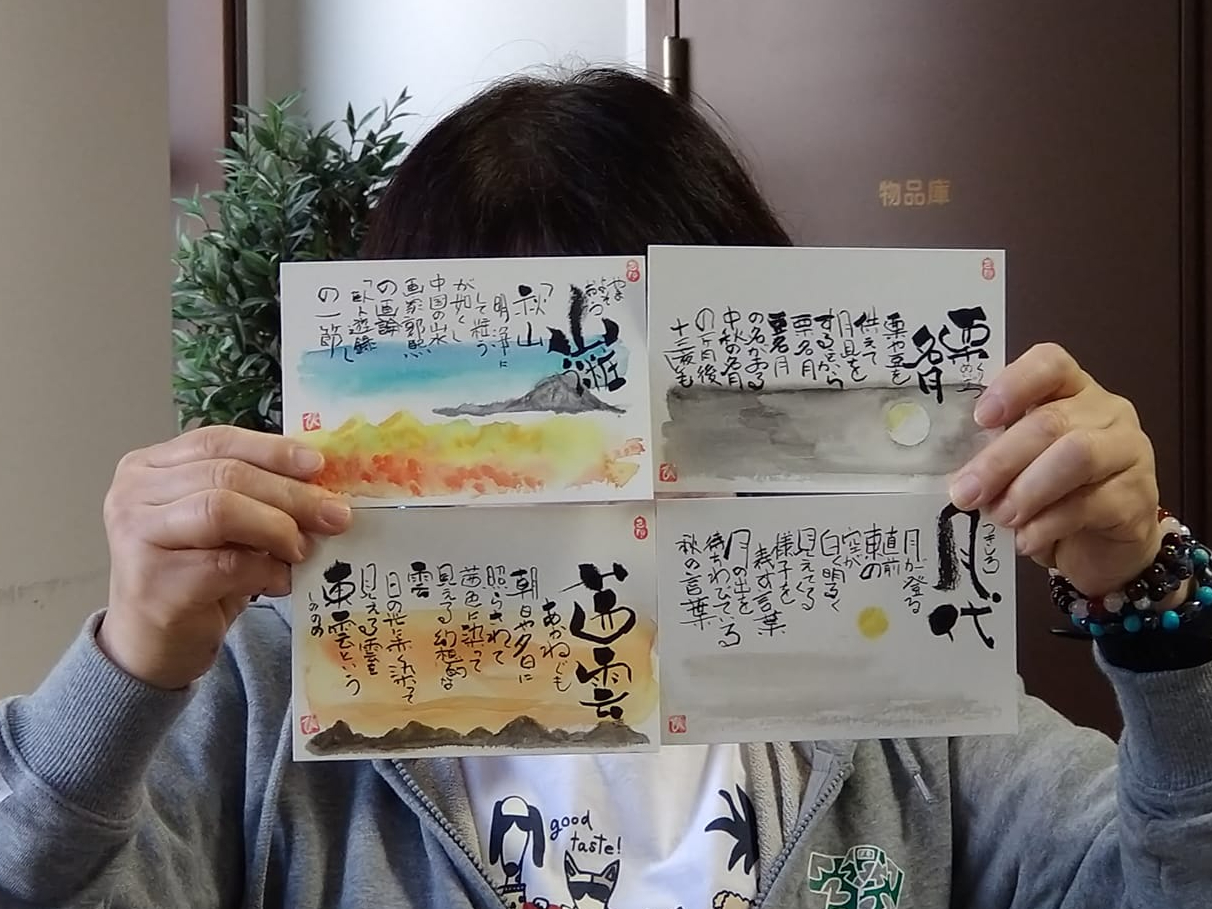 物品庫
山粧
やまよそおう
「秋山
明浄に
して粧う
が如くし
中国の山水
画家郭熙
の画論
「臥遊録」
の一節
び
栗名月
栗や豆を
供えて
月見を
するから
栗名月
豆名月
の名がある
中秋の名月
の一ヶ月後
十三夜も
び
茜雲
あかねぐも
朝日や夕日に
照らされて
茜色に染って
見える幻想的な
雲
日の出に赤く染って
見える雲を
東雲という
しののめ
び
月代
つきしろ
月が登る
直前
東の
空が
白く明るく
見えてる
様子を
表す言葉
月の出を
待ちわびている
秋の言葉
び
good
taste!